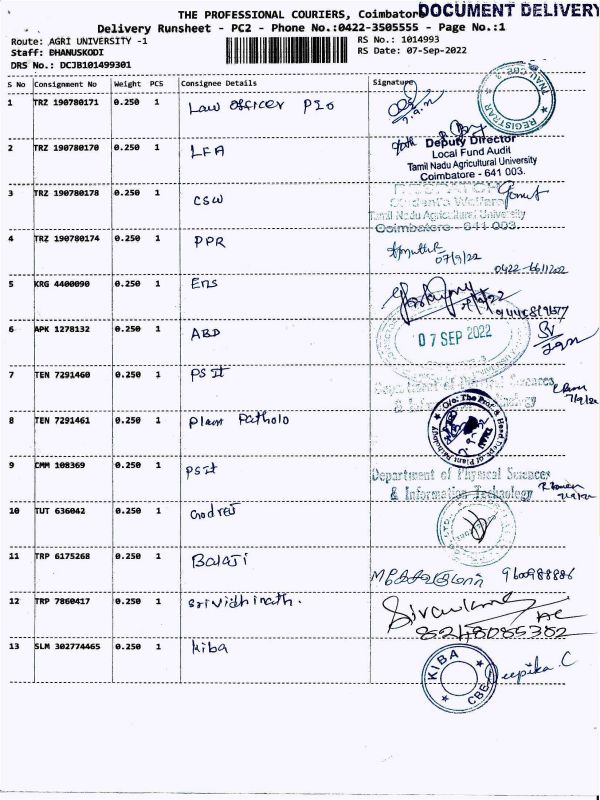 THE PROFESSIONAL COURIERS, Coimbator DOCUMENT DELIVERY
Delivery Runsheet - PC2 - Phone No.:0422-3505555 - Page No.:1
Route: AGRI UNIVERSITY -1
RS No.: 1014993
Staff: DHANUSKODI
RS Date: 07-Sep-2022
DRS No.: DCJB101499301
S No Consignment No Weight PCS Consignee Details Signature
1 TRZ 190780171 0.250 1 Law Officer PIO
7.9.22
REGISTRAR TNAU, CBE-3
2 TRZ 190780170 0.250 1 LFA
Deputy Director
Local Fund Audit
Tamil Nadu Agricultural University
Coimbatore - 641 003.
3 TRZ 190780178 0.250 1 CSW
Student's Welfare
Tamil Nadu Agricultural University
Coimbatore - 641 003.
4 TRZ 190780174 0.250 1 PPR
07/9/22
0422-6611202
5 KRG 4400090 0.250 1 Ens
07 SEP 2022
6 APK 1278132 0.250 1 ABD
7 TEN 7291460 0.250 1 PS IT
Department of Physical Sciences
& Information Technology
7/9/22
8 TEN 7291461 0.250 1 Plant Patholo
O/o. The Prof. & Head Dept. of Plant Pathology
TNAU
9 CMM 108369 0.250 1 PSIT
Department of Physical Sciences
& Information Technology
10 TUT 636042 0.250 1 Godrej
11 TRP 6175268 0.250 1 BALAJI
9600988886
12 TRP 7860417 0.250 1 Srividhinath.
8248085382
13 SLM 302774465 0.250 1 Kiba
KIBA CBE
Deepika. C